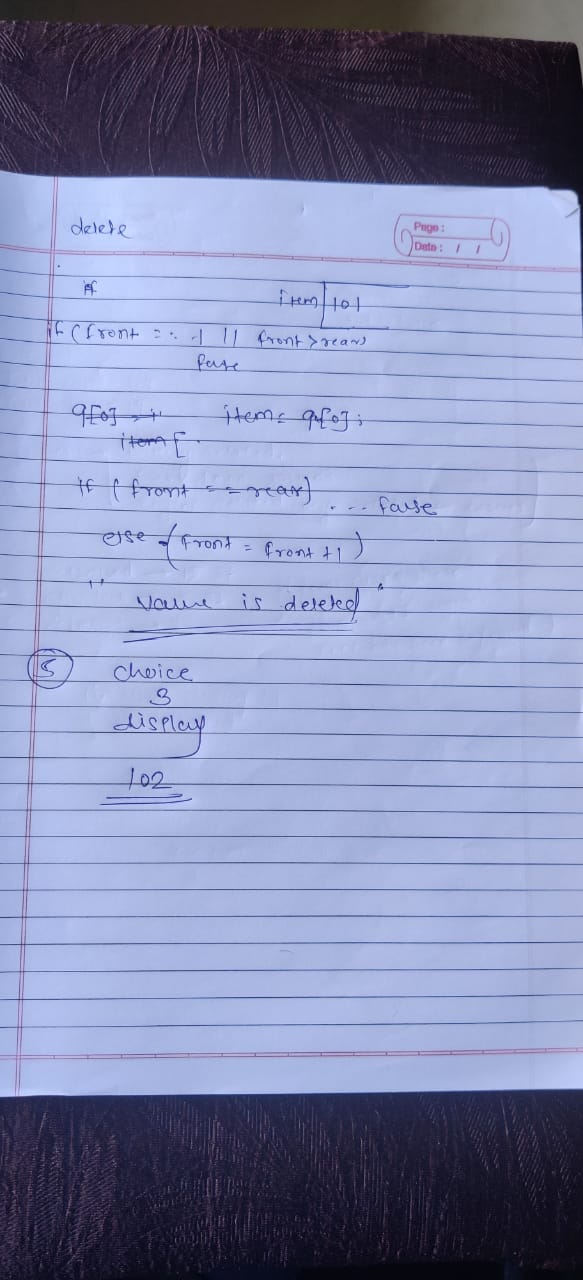 delete
Page :
Date : / /
if
item 101
if (front = = -1 || front > rear)
false
q[0] = 
item = q[0];
item [
if (front == rear) ... false
else { front = front +1 }
" value is deleted "
5 choice
3
display
102